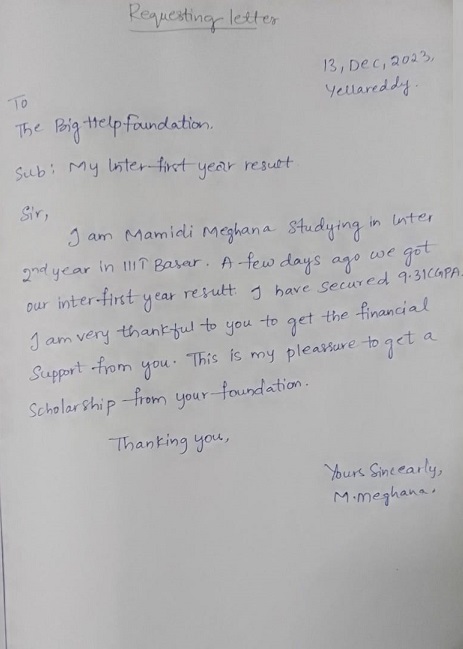 Requesting letter
13, Dec, 2023,
Yellareddy.
To
The Big Help foundation.
Sub: My Inter first year result
Sir,
I am Mamidi Meghana Studying in Inter
2nd year in IIIT Basar. A few days ago we got
our inter first year result. I have secured 9.31CGPA.
I am very thankful to you to get the financial
Support from you. This is my pleassure to get a
Scholarship from your foundation.
Thanking you,
Yours Sincearly,
M.meghana.